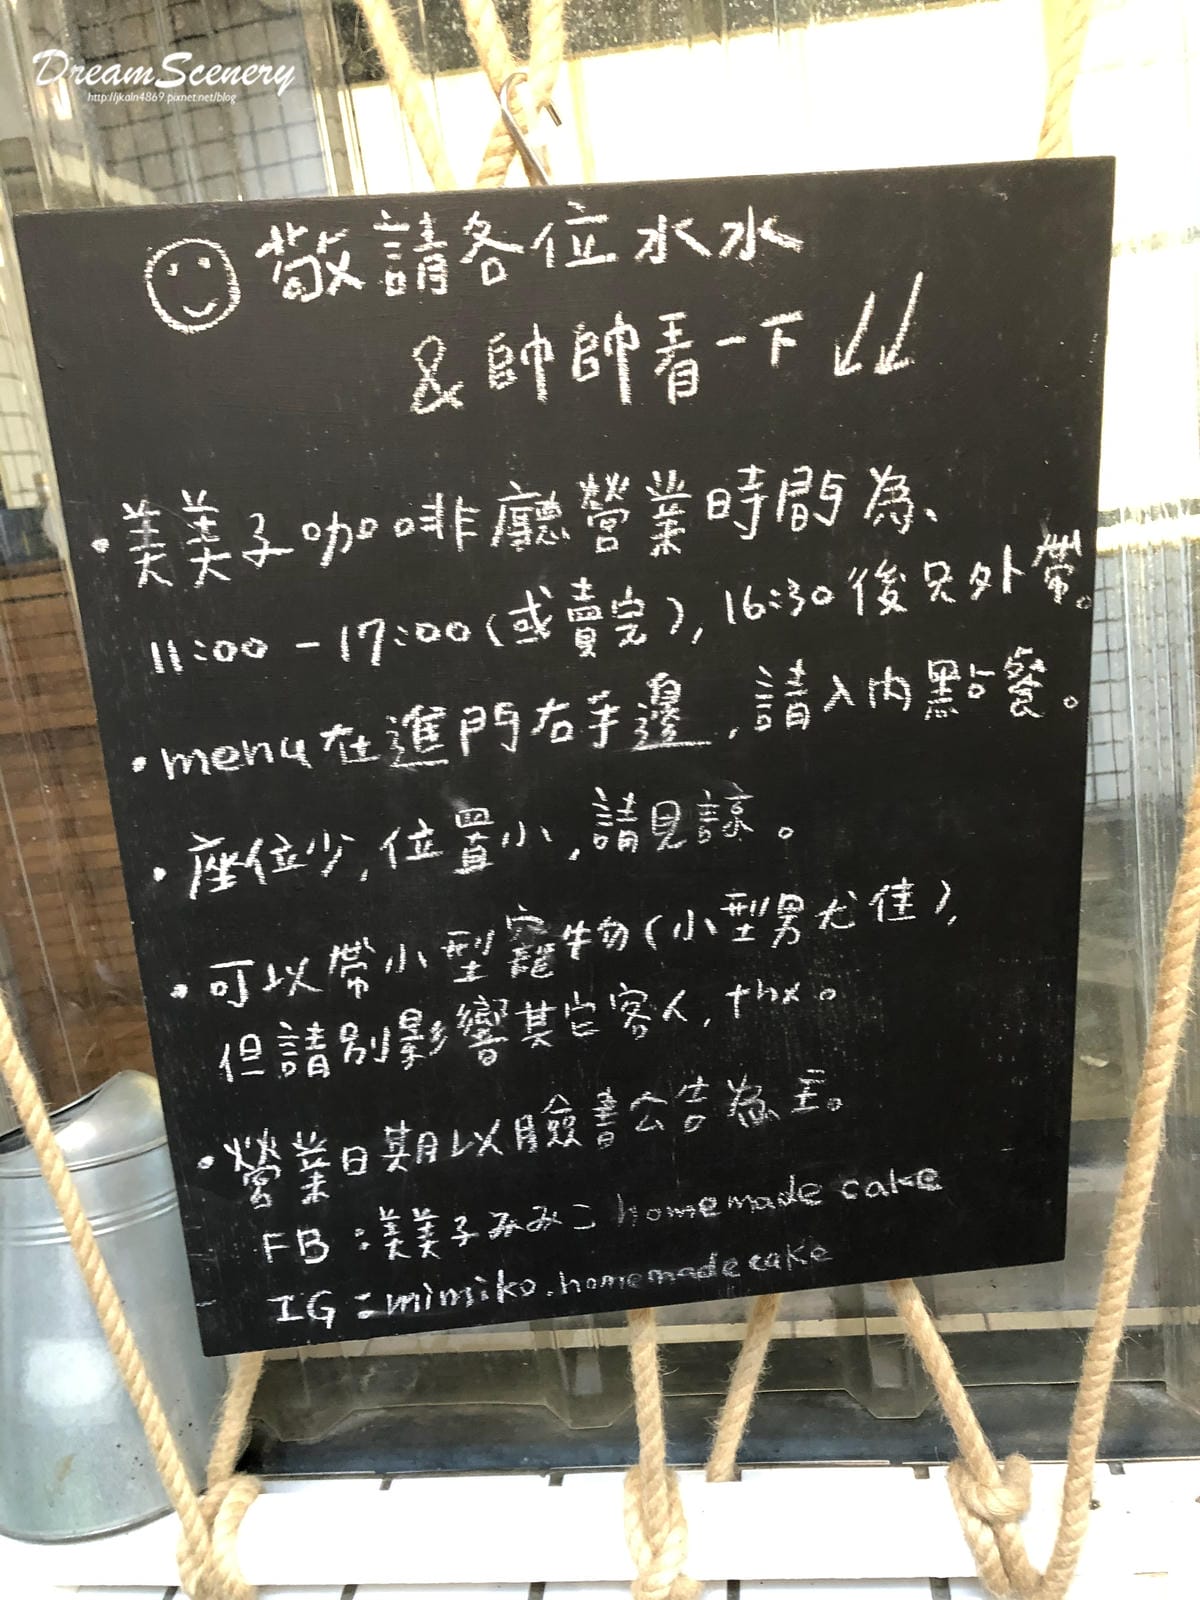 DreamScenery
http://jkaln4869.pixnet.net/blog
敬請各位水水
&帥帥看一下
・美美子咖啡廳營業時間為、
11:00-17:00(或賣完),16:30後只外帶。
・menu在進門右手邊,請入內點餐。
・座位少,位置小,請見諒。
・可以帶小型寵物(小型男尤佳),
但請別影響其它客人,thx。
・營業日期以臉書公告為主。
FB:美美子みみこ homemade cake
IG:mimiko.homemadecake